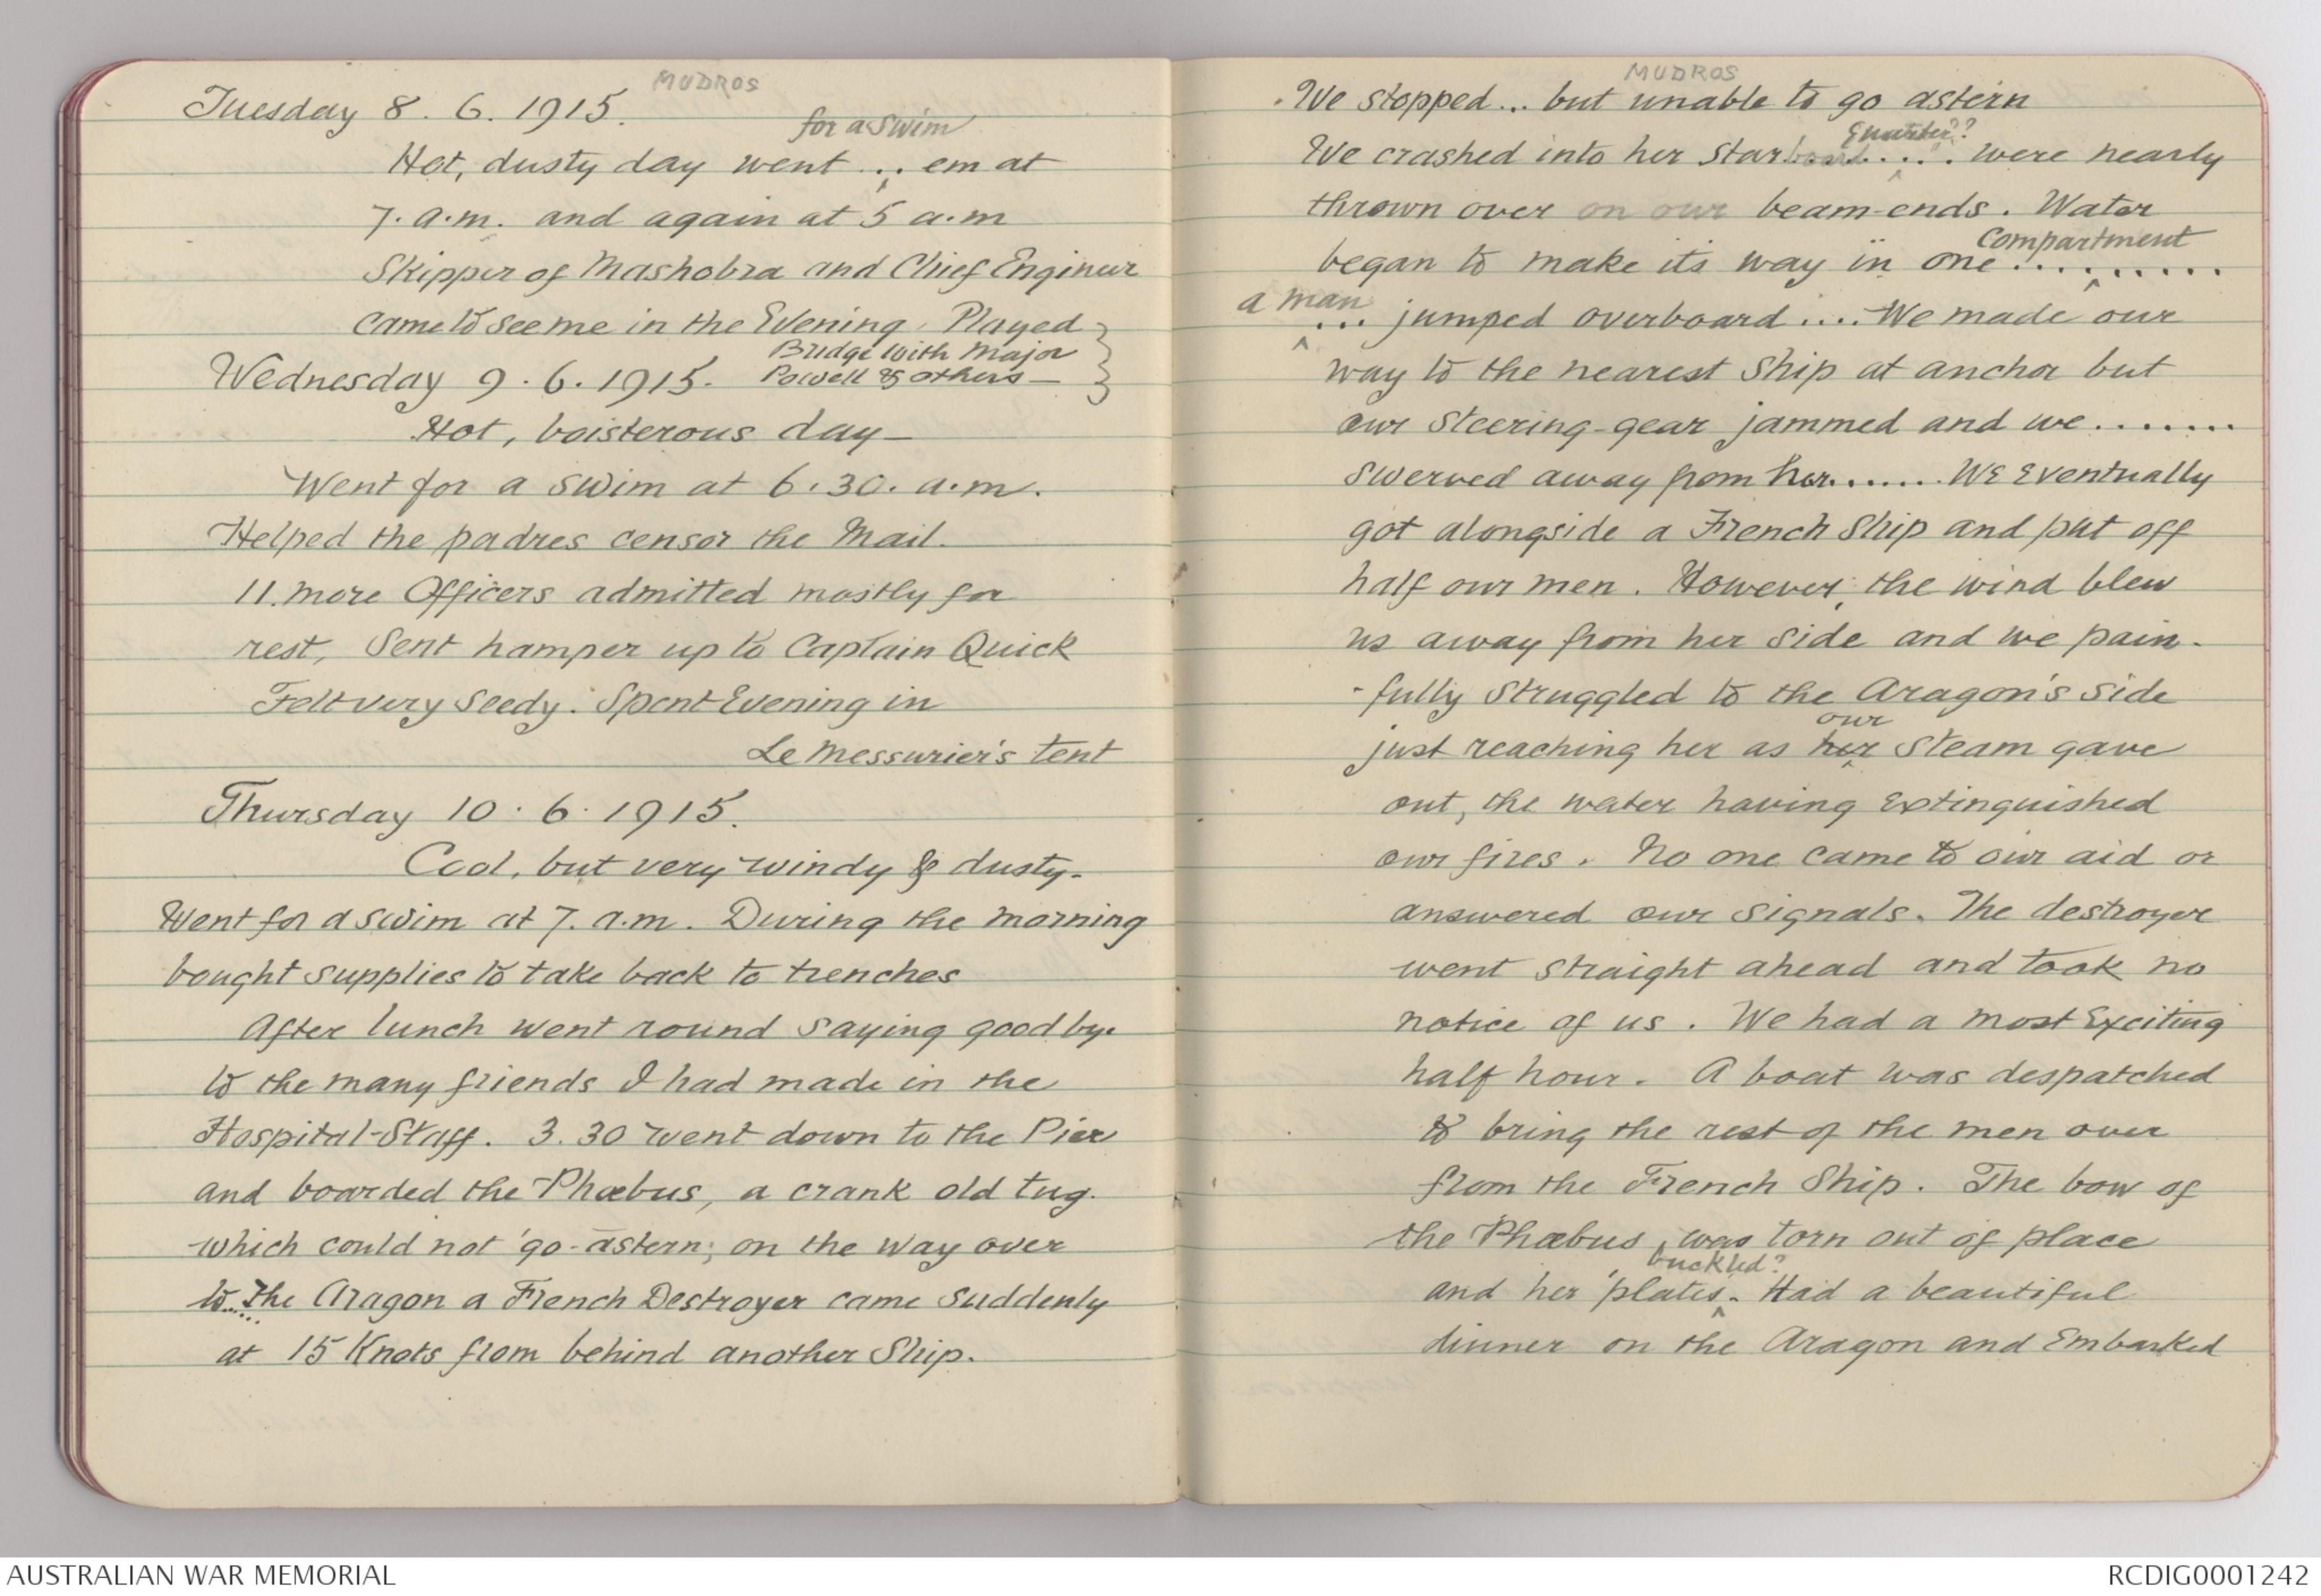 MUDROS
Tuesday 8. 6. 1915.
for a swim
Hot, dusty day went ... em at
7. a.m. and again at 5 a.m
Skipper of Mashobra and Chief Engineer
came to see me in the Evening. Played
Bridge with Major
Powell & others —
Wednesday 9. 6. 1915.
Hot, boisterous day —
Went for a swim at 6.30. a.m.
Helped the padres censor the Mail.
11. more Officers admitted mostly for
rest, Sent hamper up to Captain Quick
Felt very seedy. Spent Evening in
Le Messurier's tent
Thursday 10. 6. 1915.
Cool, but very windy & dusty.
Went for a swim at 7. a.m. During the morning
bought supplies to take back to trenches
After lunch went round saying goodbye
to the many friends I had made in the
Hospital-Staff. 3.30 went down to the Pier
and boarded the Phœbus, a crank old tug.
which could not go-astern; on the way over
to... The Aragon a French Destroyer came suddenly
at 15 Knots from behind another Ship.
MUDROS
We stopped... but unable to go astern
Quarter?
We crashed into her starboard..... were nearly
thrown over on our beam-ends. Water
compartment
began to make its way in one .........
a man
... jumped overboard.... We made our
way to the nearest Ship at anchor but
our steering-gear jammed and we.......
swerved away from her....... We Eventually
got alongside a French Ship and put off
half our men. However, the wind blew
us away from her side and we pain-
-fully struggled to the Aragon's side
our
just reaching her as her steam gave
out, the water having Extinguished
our fires. No one came to our aid or
answered our signals. The destroyer
went straight ahead and took no
notice of us. We had a most Exciting
half hour. A boat was despatched
to bring the rest of the men over
from the French Ship. The bow of
the Phœbus, was torn out of place
buckled?
and her plates. Had a beautiful
dinner on the Aragon and Embarked
AUSTRALIAN WAR MEMORIAL
RCDIG0001242